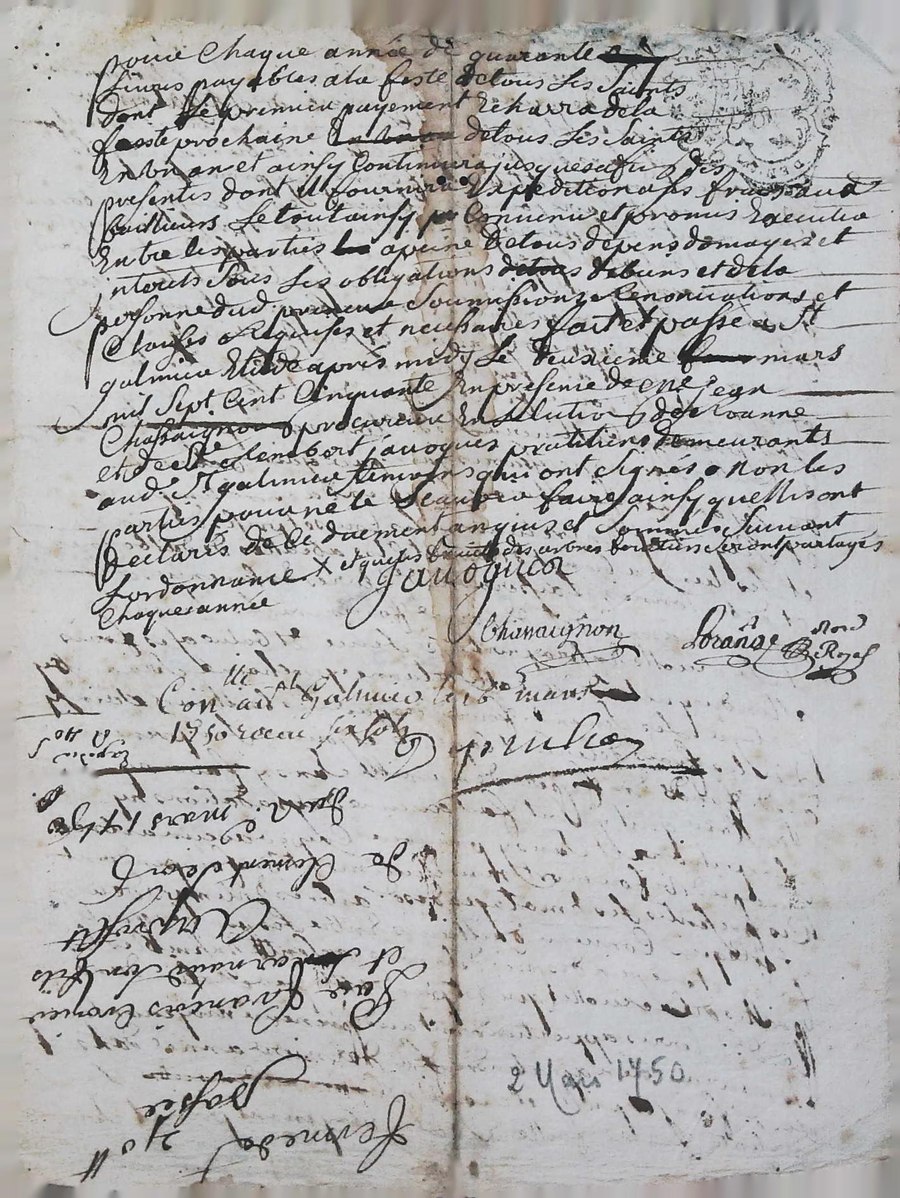 pour Chaque année de quarante
Livres payables ala feste de tous Les Saints
dont Le premier payement Echarra dela
feste prochaine de tous Les Saints
En un an et ainsy Continuera jusques a fin des
presentes dont il fournira Expedition a ses fraix aud
bailleurs Le tout ainsy Convenu et promis Executer
Entre les parties a peine de tous depens domages et
interets Sous Les obligations de biens et dela
personne dud preneur Soumissions Renonciations et
Clauses Requises et necessaires fait et passé a St
galmier Etude apres midy Le deuxieme mars
mil Sept Cent Cinquante En presence de me Jean
Chassaignon procureur En Election de Roanne
et de Clembert javogues praticiens demeurants
aud. St galmier temoins qui ont Signés & Non les
parties pour ne le Scavoir faire ainsy quelles ont
declarés de Ce duement enquis et Sommés Suivant
Lordonnance X et que les fruits des arbres fruitiers seront partagés
Chaque année
Javogues
Chassaignon
Lorange Nore Royal
Con. a St Galmier le mars
1750 recu
2 mars 1750
de Clement
Par François
et son fils
passée
ferme de 40 tt
2 Mars 1750